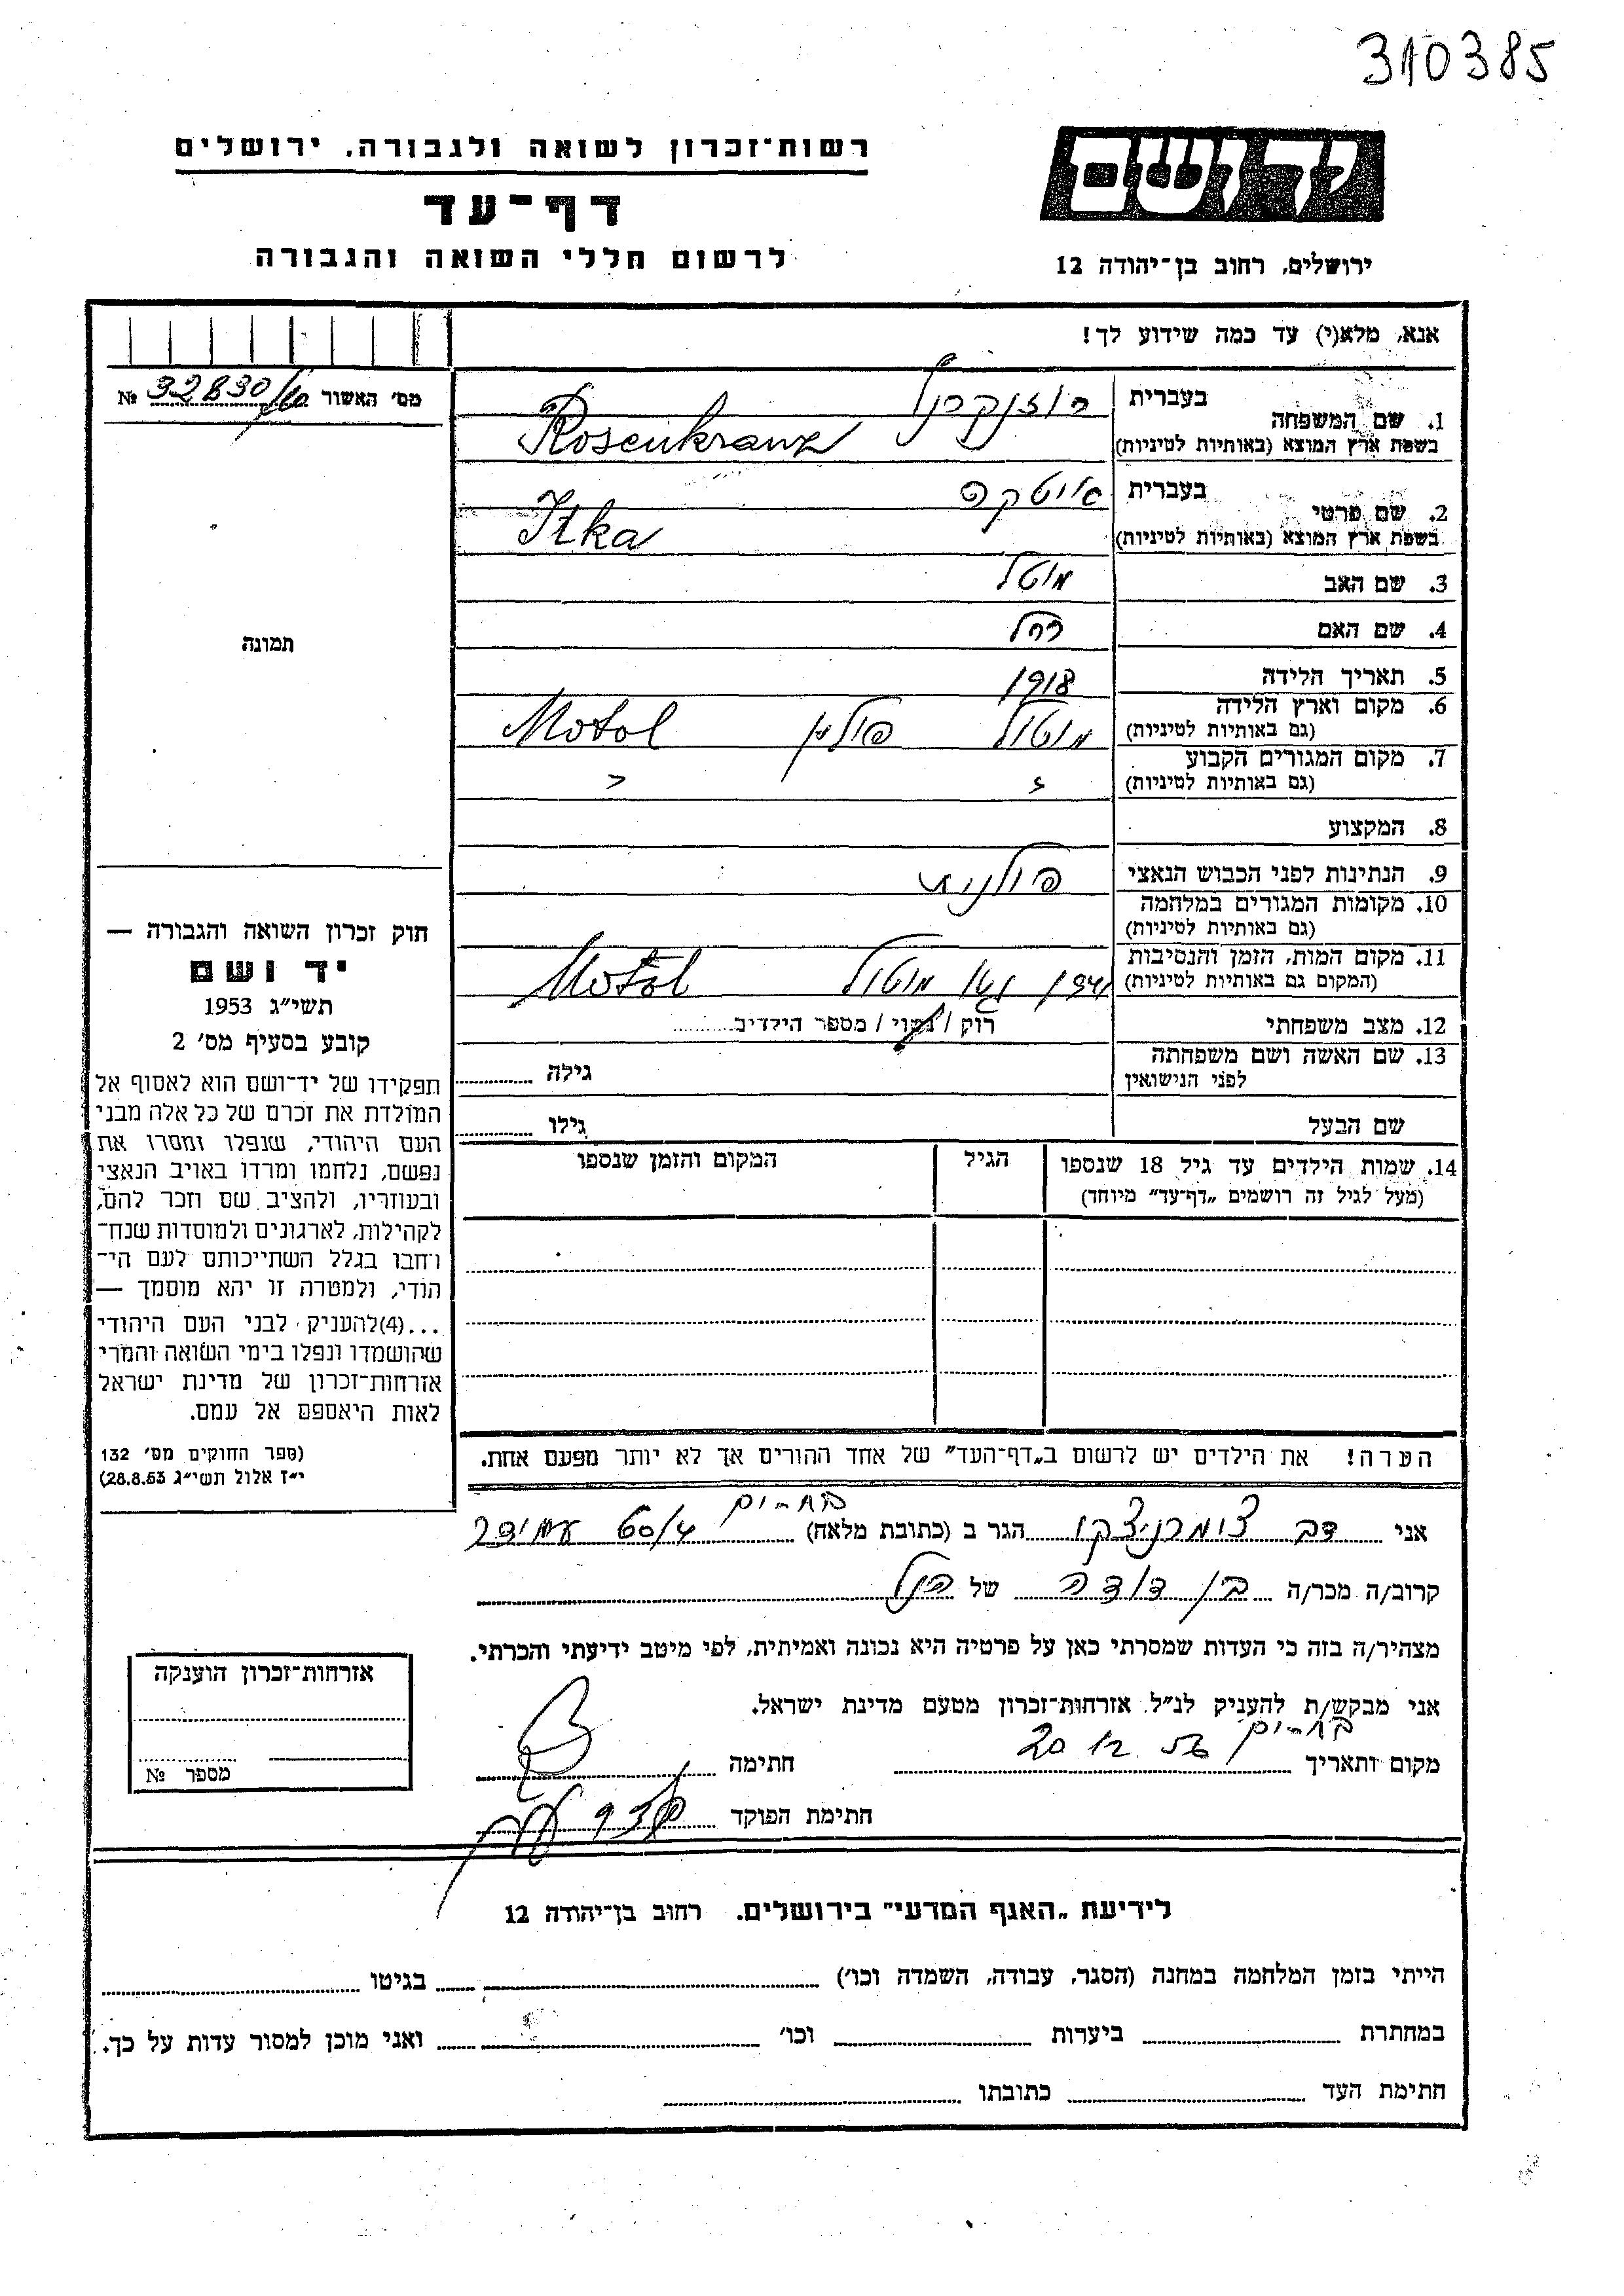 310385
רשות־זכרון לשואה ולגבורה, ירושלים
דף־עד
לרשום חללי השואה והגבורה
יד ושם
ירושלים, רחוב בן־יהודה 12
אנא, מלא(י) עד כמה שידוע לך!
מס׳ האשור 32830/ № 
1. שם המשפחה
בעברית רוזנקרנץ
בשפת ארץ המוצא (באותיות לטיניות) Rosenkranz
2. שם פרטי
בעברית איטקה
בשפת ארץ המוצא (באותיות לטיניות) Itka
3. שם האב מוטל
4. שם האם רחל
5. תאריך הלידה 1918
6. מקום וארץ הלידה
(גם באותיות לטיניות) מוטול פולין Motol
7. מקום המגורים הקבוע
(גם באותיות לטיניות)
8. המקצוע
9. הנתינות לפני הכבוש הנאצי פולנית
10. מקומות המגורים במלחמה
(גם באותיות לטיניות)
11. מקום המות, הזמן והנסיבות
(המקום גם באותיות לטיניות) מוטול Motol
12. מצב משפחתי רוק / נשוי / מספר הילדים
13. שם האשה ושם משפחתה
לפני הנישואין גילה
שם הבעל גילו
14. שמות הילדים עד גיל 18 שנספו הגיל המקום והזמן שנספו
(מעל לגיל זה רושמים „דף־עד״ מיוחד)
הערה! את הילדים יש לרשום ב„דף־העד״ של אחד ההורים אך לא יותר מפעם אחת.
תמונה
חוק זכרון השואה והגבורה —
יד ושם
תשי״ג 1953
קובע בסעיף מס׳ 2
תפקידו של יד־ושם הוא לאסוף אל
המולדת את זכרם של כל אלה מבני
העם היהודי, שנפלו ומסרו את
נפשם, נלחמו ומרדו באויב הנאצי
ובעוזריו, ולהציב שם וזכר להם,
לקהילות, לארגונים ולמוסדות שנח־
רחבו בגלל השתייכותם לעם הי־
הודי, ולמטרה זו יהא מוסמך —
...(4)להעניק לבני העם היהודי
שהושמדו ונפלו בימי השואה והמרי
אזרחות־זכרון של מדינת ישראל
לאות היאספם אל עמם.
(ספר החוקים מס׳ 132
י״ז אלול תשי״ג 28.8.53)
אני דב הגר ב (כתובת מלאה) 60/4 עמידר
קרוב/ה מכר/ה בן דודה של הנ״ל
מצהיר/ה בזה כי העדות שמסרתי כאן על פרטיה היא נכונה ואמיתית, לפי מיטב ידיעתי והכרתי.
אני מבקש/ת להעניק לנ״ל אזרחות־זכרון מטעם מדינת ישראל.
מקום ותאריך 20 12 56 חתימה
חתימת הפוקד
אזרחות־זכרון הוענקה
מספר №
לידיעת „האגף המדעי״ בירושלים. רחוב בן־יהודה 12
הייתי בזמן המלחמה במחנה (הסגר, עבודה, השמדה וכו׳) בגיטו
במחתרת ביערות וכו׳ ואני מוכן למסור עדות על כך.
חתימת העד כתובתו